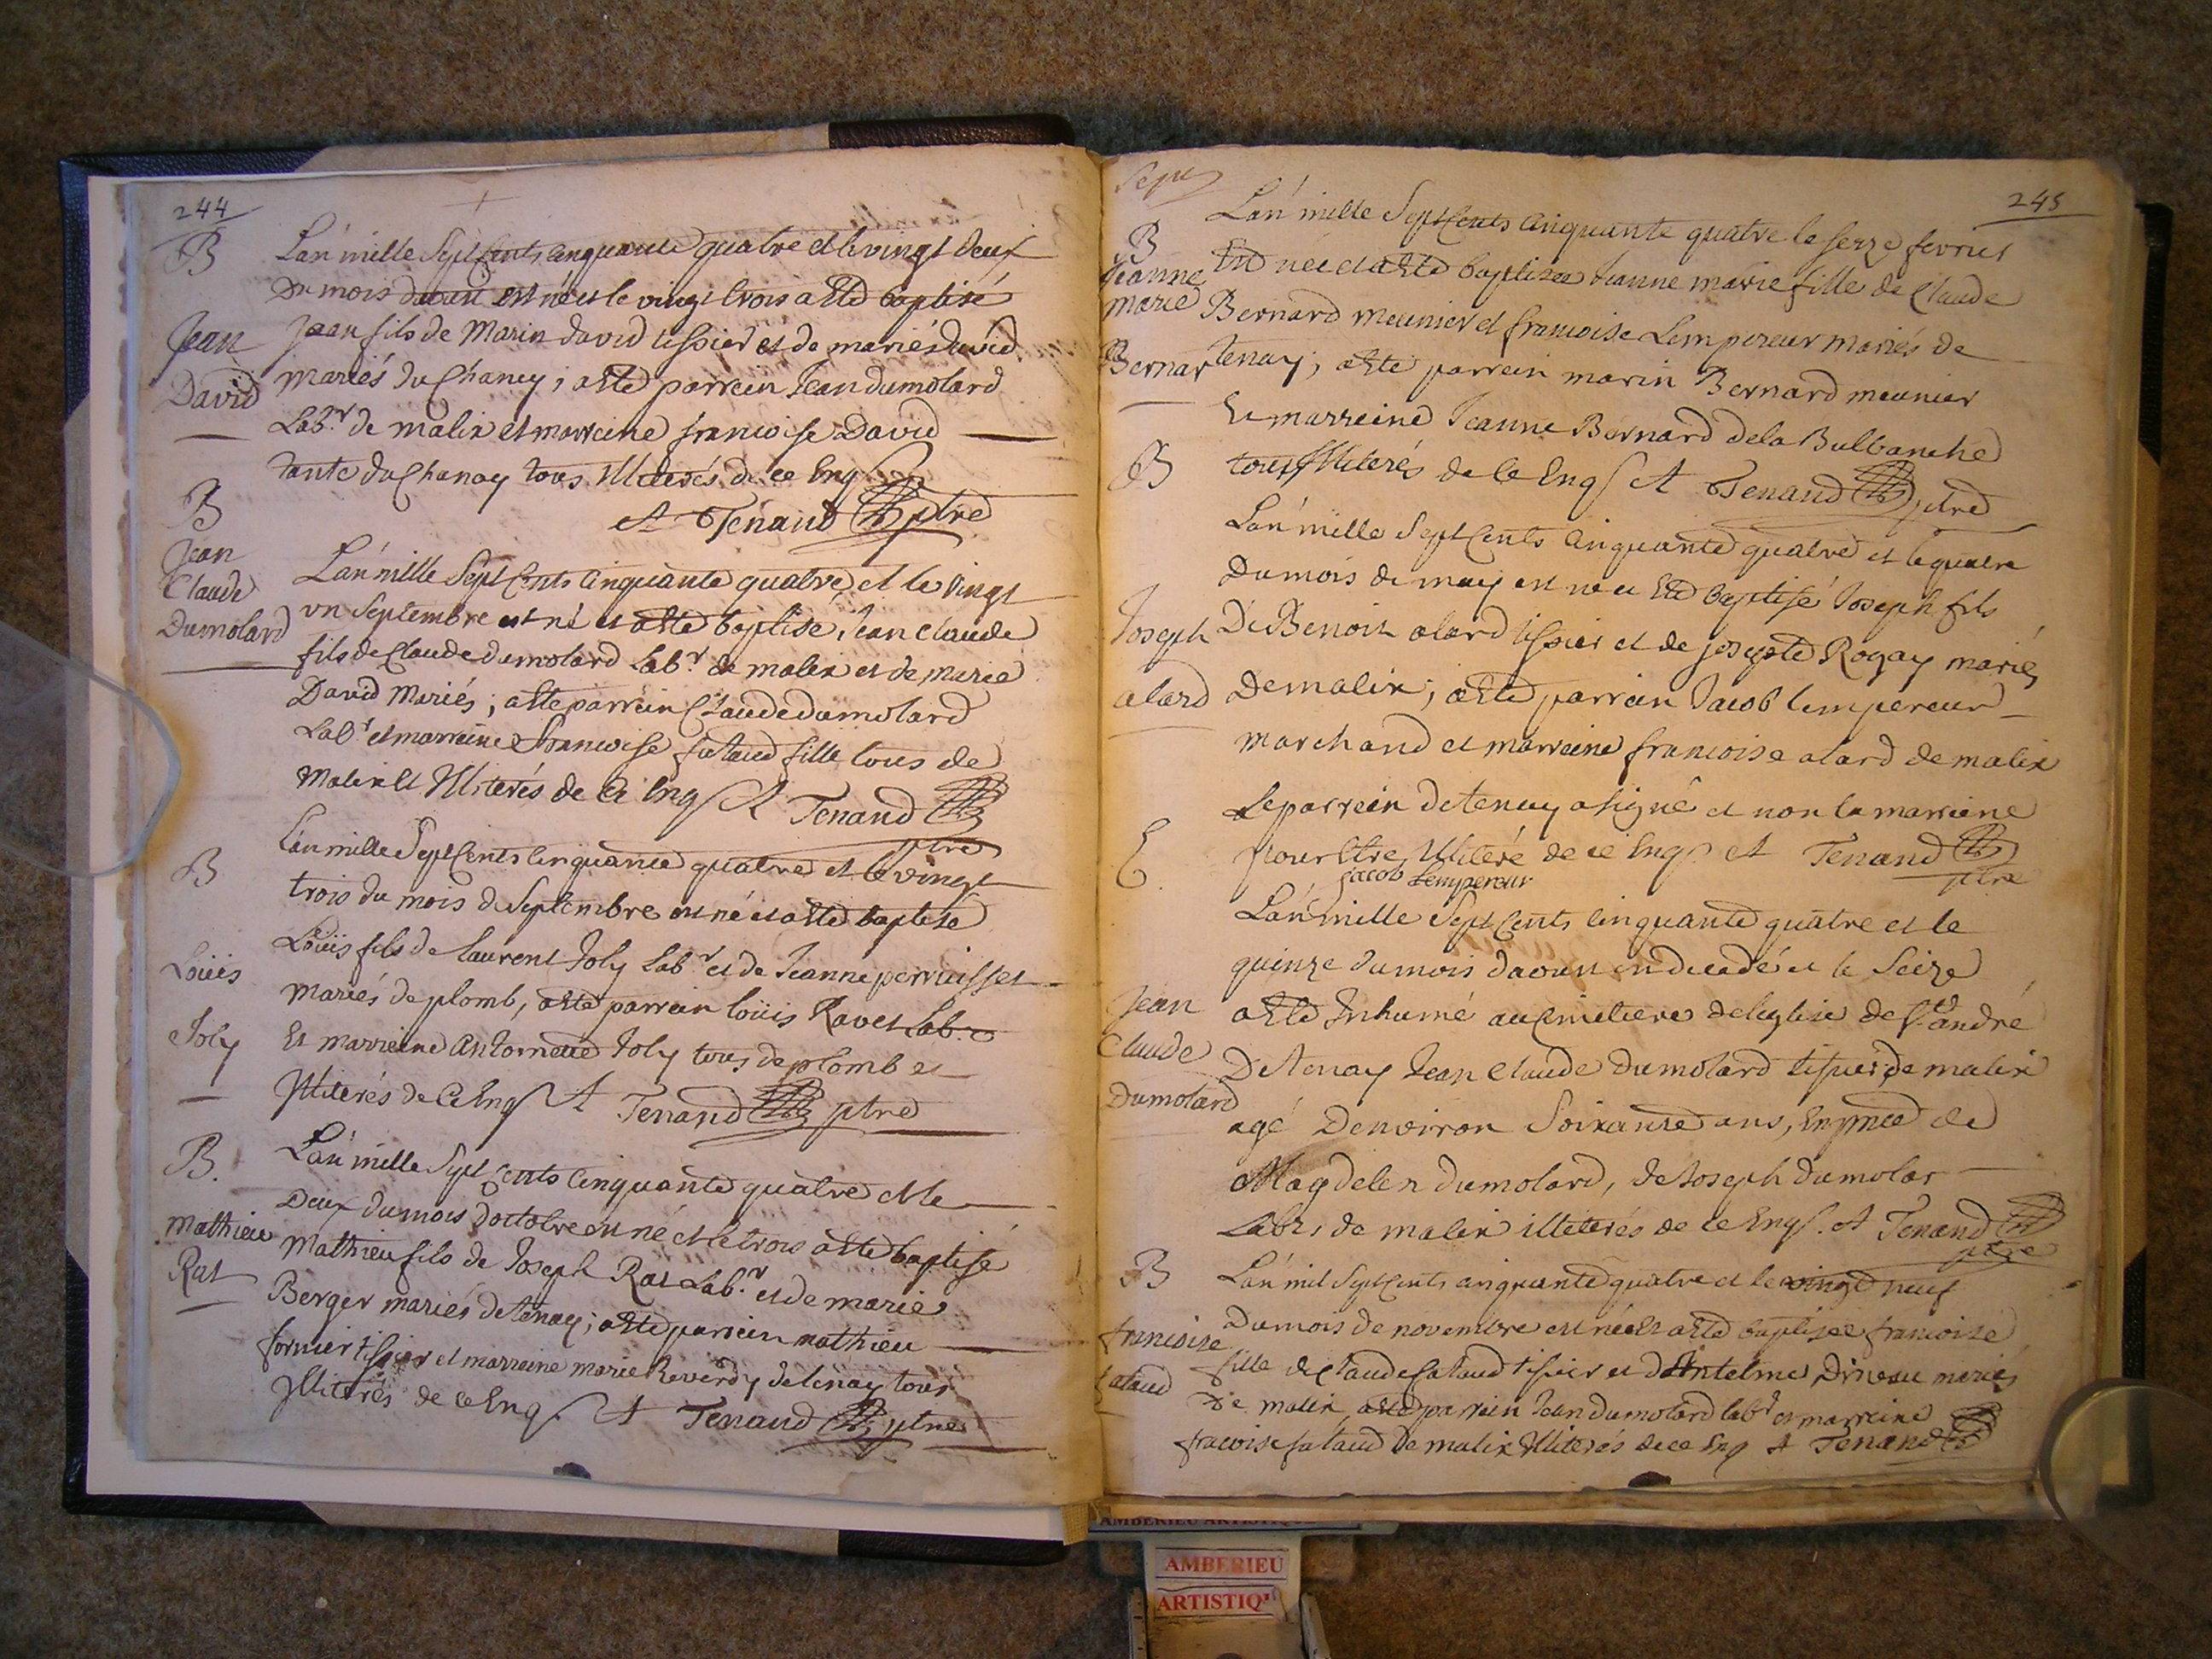 244
B
L'an mille Sept Cents Cinquante quatre et le vingt deux
Du mois daoust est né et le vingt trois a Eté baptisé
Jean
Jean fils de Marin David tissier et de marie David
David
mariés du Chaney; a Eté parrein Jean dumolard
Labr. de malix et marreine francoise David
tante du Chanay tous Illiterés de ce Enq
B
A Tenand ptre
Jean
Claude
Dumolard
L'an mille Sept Cents Cinquante quatre, et le vingt
un Septembre est né et a Eté baptisé, Jean Claude
fils de Claude dumolard Labr. de malix et de marie
David Mariés; a Eté parrein Claude dumolard
Labr. et marreine francoise fataud fille tous de
Malix et Illiterés de ce Enq A Tenand
ptre
B
L'an mille Sept Cents Cinquante quatre et le vingt
trois du mois de Septembre est né et a Eté baptisé
Loüis
Loüis fils de laurent Joly Labr et de Jeanne pervuisset
mariés de plomb, a Eté parrein loüis Ravet Labr.
Joly
Et marreine Antoinette Joly tous de plomb et
Illiterés de Ce Enq A Tenand ptre
B.
L'an mille Sept Cents Cinquante quatre et le
Deux du mois doctobre est né et le trois a Eté baptisé
Mathieu
Mathieu fils de Joseph Rat Labr. et de marie
Rat
Berger mariés de tenay; a Eté parrein mathieu
fornier tissier et marreine marie Reverdy de tenay tous
Illiterés de ce Enq. A Tenand ptre
Sept
245
L'an mille Sept Cents Cinquante quatre le seize fevrier
B
Est née et a Eté baptisée Jeanne marie fille de Claude
Jeanne
marie
Bernard meunier et francoise Lempereur mariés de
Bernar
tenay; a Eté parrein marin Bernard meunier
Et marreine Jeanne Bernard de la Bulbanche
B
tous Illiterés de Ce Enq A Tenand ptre
L'an mille Sept Cents Cinquante quatre et le quatre
Du mois de may est né et Eté baptisé Joseph fils
Joseph
De Benoit alard tissier et de josepte Rogay mariés
alard
De malix; a Eté parrein Jacob lempereur
marchand et marreine francoise alard de malix
Le parrein de tenay a signé et non la marreine
E.
pour Etre Illiteré de ce Enq. A Tenand
jacob Lempereur
ptre
L'an mille Sept Cents Cinquante quatre et le
quinze du mois daoust est decedé et le Seize
Jean
a Eté Inhumé au Cimetiere de leglise de St. andré
Claude
De tenay Jean Claude dumolard tissier de malix
Dumolard
agé Denviron Soixante ans, En pnce de
Magdelen dumolard, de Joseph dumolar
Labrs de malix illeterés de ce Enq. A Tenand
ptre
B
L'an mil Sept Cents cinquante quatre et le vingt neuf
Du mois de novembre est née et a Eté baptisée francoise
francoise
fataud
fille de Claude fataud tissier et dAntelme mariés
De malix, a Eté parrein Jean dumolard labr. et marreine
fracoise fataud de malix Illiterés de ce Enq A Tenand
AMBERIEU ARTISTIQ
AMBERIEU
ARTISTIQ